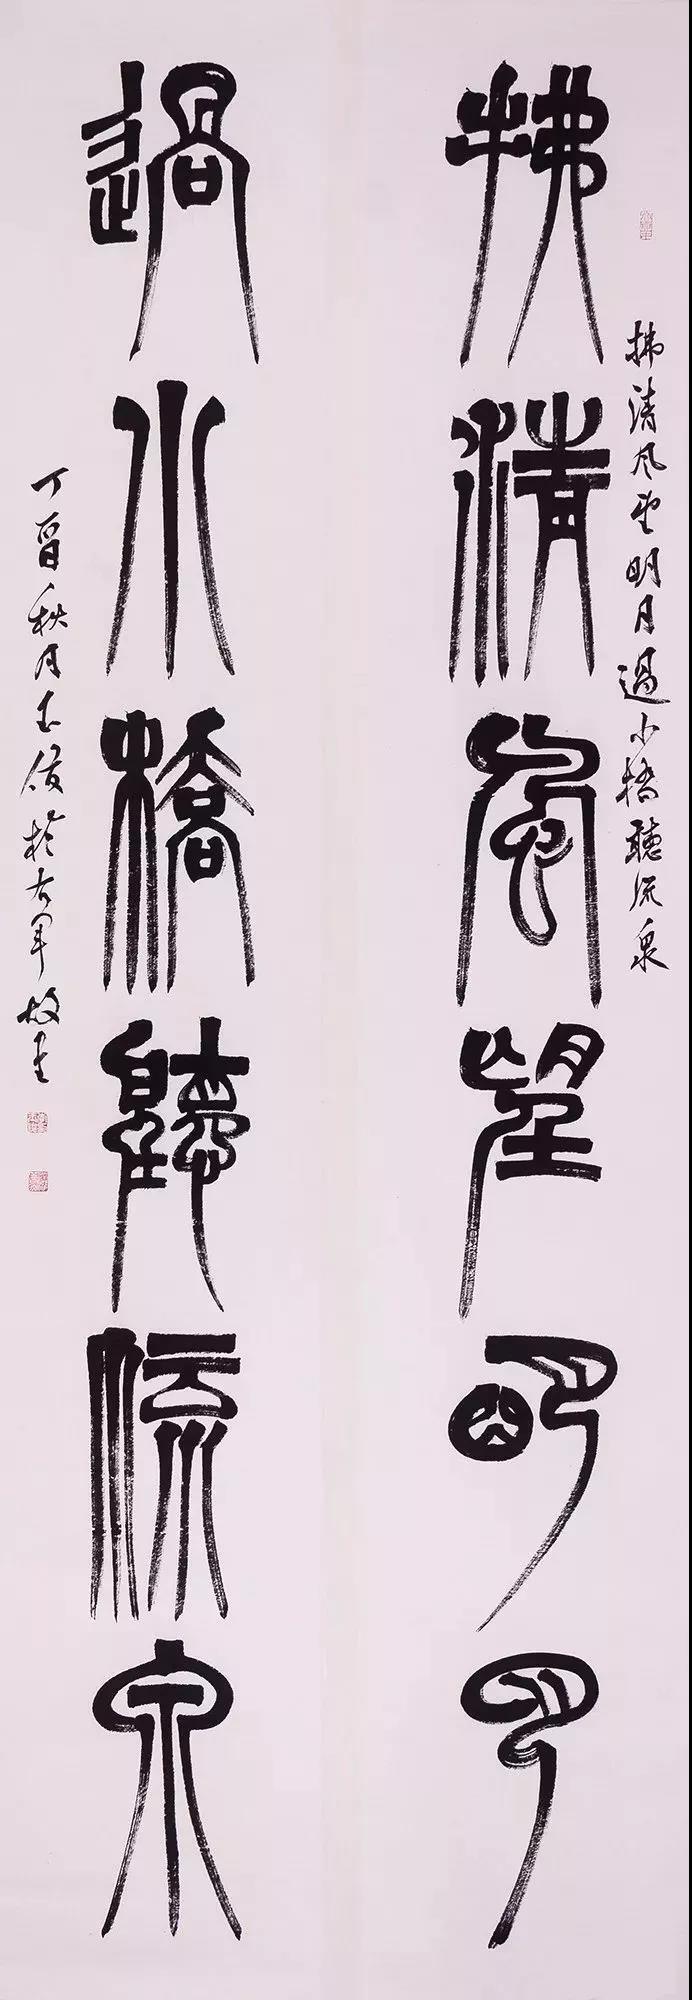 拂清风望明月過小橋聽流泉
拂清風望明月
過小橋聽流泉
丁酉秋月於右軍故里